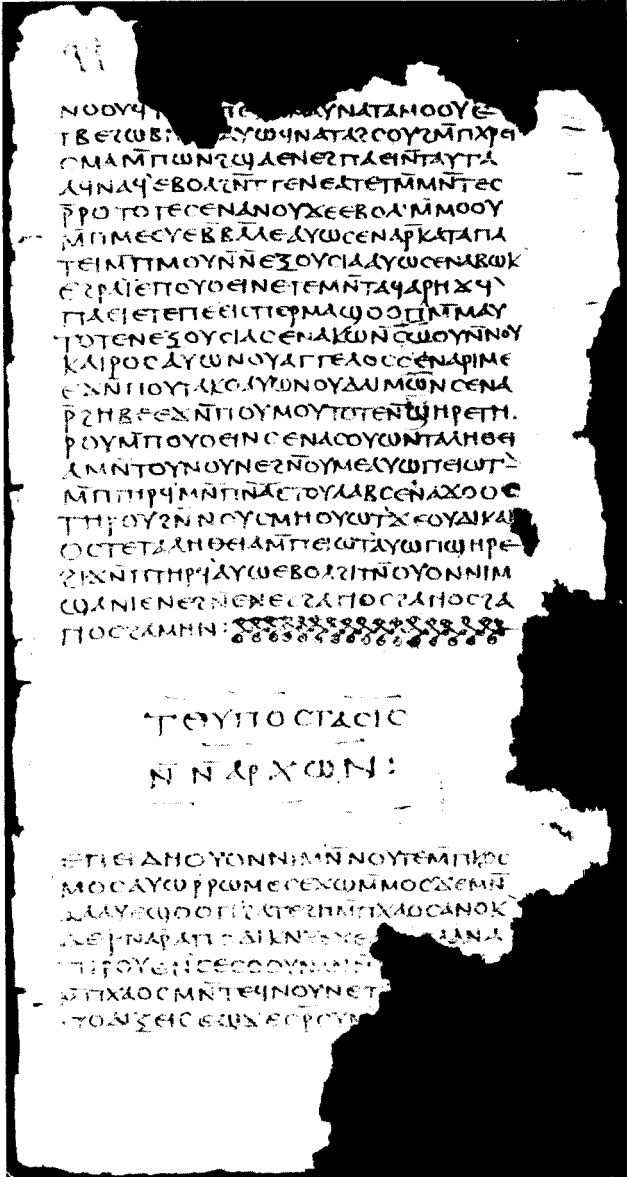 ϥⲍ
ⲛⲟⲟⲩϥ ⲁⲩⲛⲁⲧⲁⲙⲟⲟⲩⲉ
ⲧⲃⲉϩⲱⲃ ⲁⲩⲱϥⲛⲁⲧⲁϩⲥⲟⲩϩⲙ̄ⲡⲭⲣⲉⲓ
ⲥⲙⲁⲙ̄ⲡⲱⲛϩϣⲁⲉⲛⲉϩⲡⲁⲉⲓⲛ̄ⲧⲁⲩⲧⲁ
ⲁϥⲛⲁϥⲉⲃⲟⲗϩⲛ̄ⲧⲅⲉⲛⲉⲁⲧⲉⲧⲙ̄ⲙⲛ̄ⲧⲉⲥ
ⲣ̄ⲣⲟⲧⲟⲧⲉⲥⲉⲛⲁⲛⲟⲩϫⲉⲉⲃⲟⲗⲙ̄ⲙⲟⲟⲩ
ⲙ̄ⲡⲙⲉⲉⲩⲉⲃ̄ⲃⲗ̄ⲗⲉⲁⲩⲱⲥⲉⲛⲁⲣ̄ⲕⲁⲧⲁⲡⲁ
ⲧⲉⲓⲙ̄ⲡⲙⲟⲩⲛ̄ⲛⲉⲝⲟⲩⲥⲓⲁⲁⲩⲱⲥⲉⲛⲁⲃⲱⲕ
ⲉϩⲣⲁⲓⲉⲡⲟⲩⲟⲉⲓⲛⲉⲧⲉⲙⲛ̄ⲧⲁϥⲁⲣⲏϫϥ
ⲡⲁⲉⲓⲉⲧⲉⲡⲉⲉⲓⲥⲡⲉⲣⲙⲁϣⲟⲟⲡⲙ̄ⲙⲁⲩ
ⲧⲟⲧⲉⲛⲉⲝⲟⲩⲥⲓⲁⲥⲉⲛⲁⲕⲱⲛ̄ⲥⲱⲟⲩⲛ̄ⲛⲟⲩ
ⲕⲁⲓⲣⲟⲥⲁⲩⲱⲛⲟⲩⲁⲅⲅⲉⲗⲟⲥⲥⲉⲛⲁⲣⲓⲙⲉ
ⲉϫⲛ̄ⲡⲟⲩⲧⲁⲕⲟⲁⲩⲱⲛⲟⲩⲇⲁⲓⲙⲱⲛⲥⲉⲛⲁ
ⲣ̄ϩⲏⲃⲉⲉϫⲛ̄ⲡⲟⲩⲙⲟⲩⲧⲟⲧⲉⲛ̄ϣⲏⲣⲉⲧⲏ
ⲣⲟⲩⲙ̄ⲡⲟⲩⲟⲉⲓⲛⲥⲉⲛⲁⲥⲟⲩⲱⲛⲧⲁⲗⲏⲑⲉⲓ
ⲁⲙⲛ̄ⲧⲟⲩⲛⲟⲩⲛⲉϩⲛ̄ⲟⲩⲙⲉⲁⲩⲱⲡⲉⲓⲱⲧ
ⲙ̄ⲡⲧⲏⲣϥⲙⲛ̄ⲡⲛ̄ⲁⲉⲧⲟⲩⲁⲁⲃⲥⲉⲛⲁϫⲟⲟⲥ
ⲧⲏⲣⲟⲩϩⲛ̄ⲛⲟⲩⲥⲙⲏⲟⲩⲱⲧϫⲉⲟⲩⲇⲓⲕⲁⲓ
ⲟⲥⲧⲉⲧⲁⲗⲏⲑⲉⲓⲁⲙ̄ⲡⲉⲓⲱⲧⲁⲩⲱⲡϣⲏⲣⲉ
ϩⲓϫⲛ̄ⲡⲧⲏⲣϥⲁⲩⲱⲉⲃⲟⲗϩⲓⲧⲛ̄ⲟⲩⲟⲛⲛⲓⲙ
ϣⲁⲛⲓⲉⲛⲉϩⲛ̄ⲉⲛⲉϩϩⲁⲅⲓⲟⲥϩⲁⲅⲓⲟⲥϩⲁ
ⲅⲓⲟⲥϩⲁⲙⲏⲛ:
ⲧϩⲩⲡⲟⲥⲧⲁⲥⲓⲥ
ⲛ̄ⲛ̄ⲁⲣⲭⲱⲛ:
ⲉⲡⲉⲓⲇⲏⲟⲩⲟⲛⲛⲓⲙⲛ̄ⲛⲟⲩⲧⲉⲙ̄ⲡⲕⲟⲥ
ⲙⲟⲥⲁⲩⲱⲣ̄ⲣⲱⲙⲉⲥⲉϫⲱⲙ̄ⲙⲟⲥϫⲉⲙⲛ̄
ⲗⲁⲁⲩⲉϣⲟⲟⲡϩⲁⲧⲉϩⲏⲙ̄ⲡⲭⲁⲟⲥⲁⲛⲟⲕ
ⲇⲉϯⲛⲁⲣⲁⲡⲟⲇⲓⲕⲛⲩⲉϫⲉ ⲁⲩⲡⲗⲁⲛⲁ
ⲧⲏⲣⲟⲩⲉⲛⲥⲉⲥⲟⲟⲩⲛⲁⲛ
ⲙ̄ⲡⲭⲁⲟⲥⲙⲛ̄ⲧⲉϥⲛⲟⲩⲛⲉⲧ
ⲧⲟⲇⲓⲝⲉⲓⲥⲉϣϫⲉⲥⲣ̄ⲥⲩⲙ